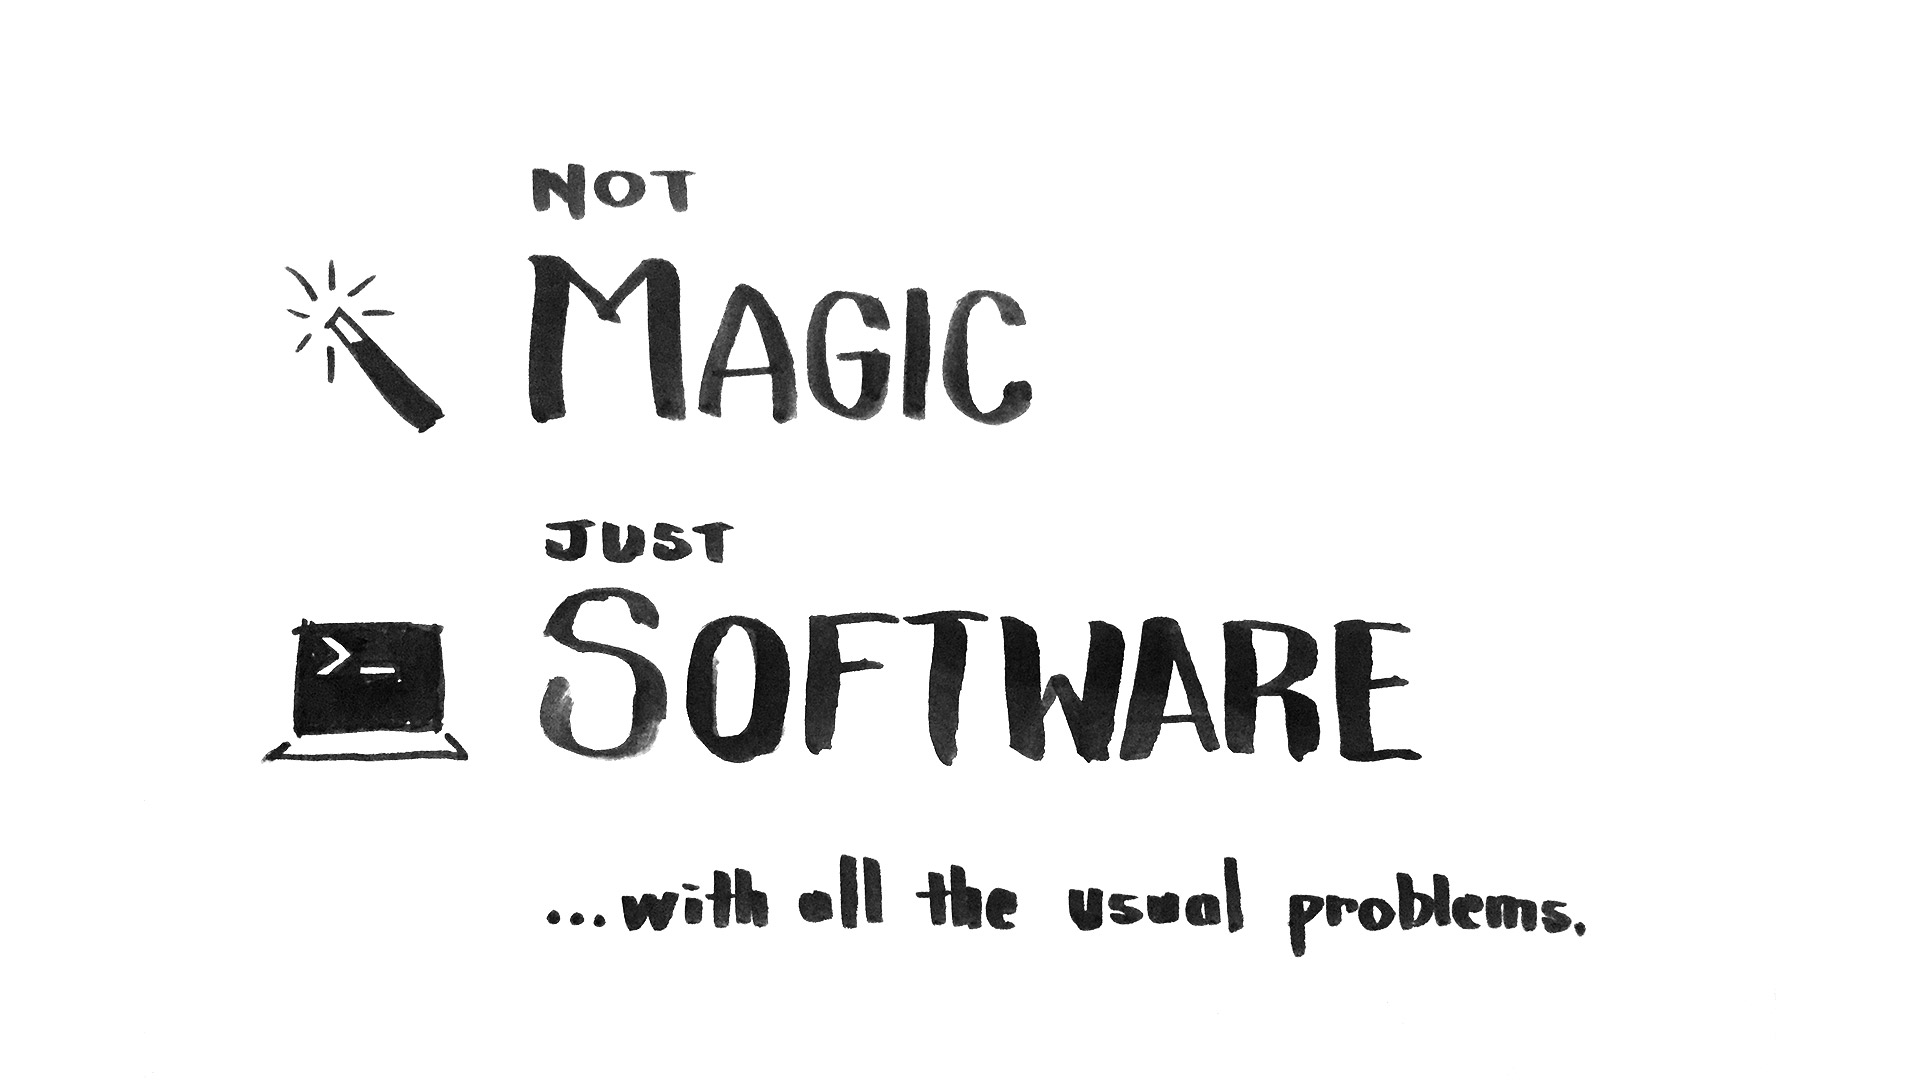 NOT
MAGIC
JUST
SOFTWARE
>_
...with all the usual problems.